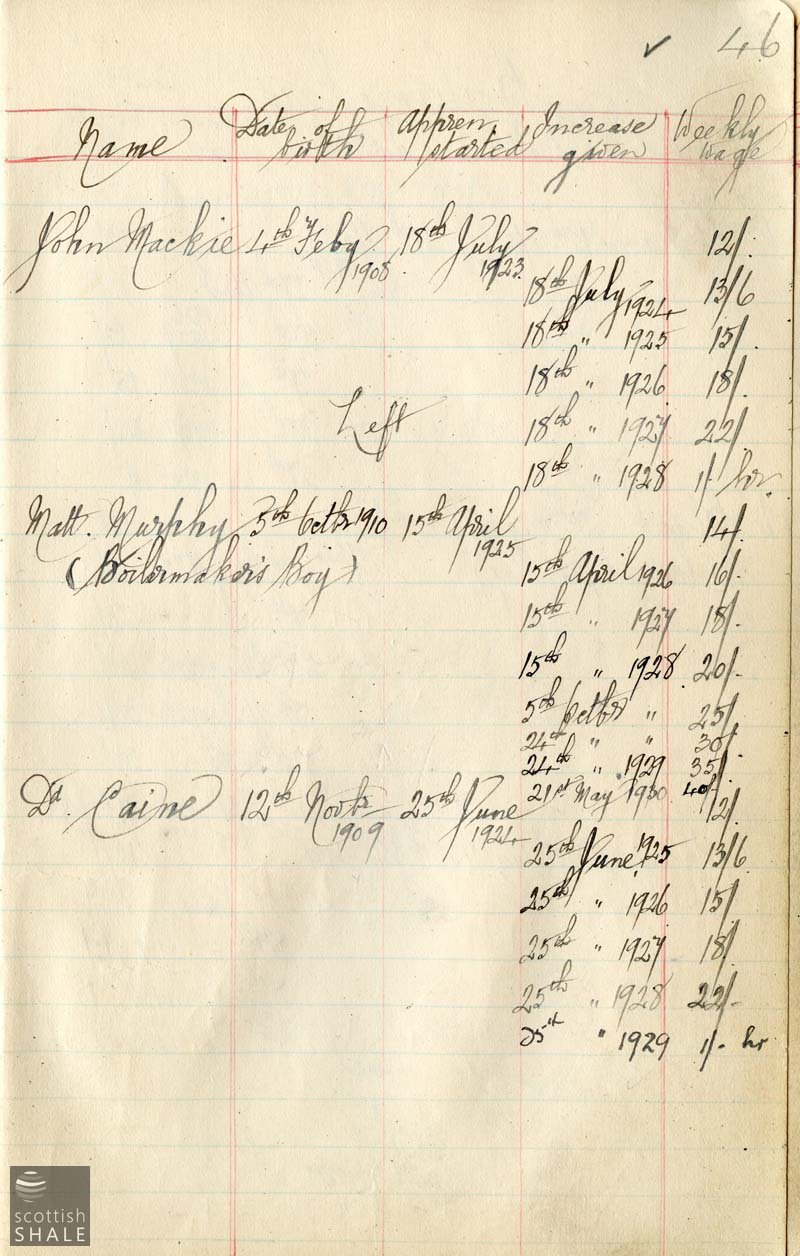 ✓ 46
Name Date of birth Appren started Increase given Weekly wage
John Mackie 4th Feby 1908 18th July 1923 12/-
18th July 1924 13/6
18th " 1925 15/-
18th " 1926 18/-
Left
18th " 1927 22/-
18th " 1928 1/- hr
Matt. Murphy 5th Octbr 1910 15th April 1925 14/-
(Boilermaker's Boy) 15th April 1926 16/-
15th " 1927 18/-
15th " 1928 20/-
5th Octbr " 25/-
24th " " 30/-
24th " 1929 35/-
21st May 1930 40/-
Dd. Caine 12th Novbr 1909 25th June 1924 12/-
25th June 1925 13/6
25th " 1926 15/-
25th " 1927 18/-
25th " 1928 22/-
25th " 1929 1/- hr
scottish
SHALE